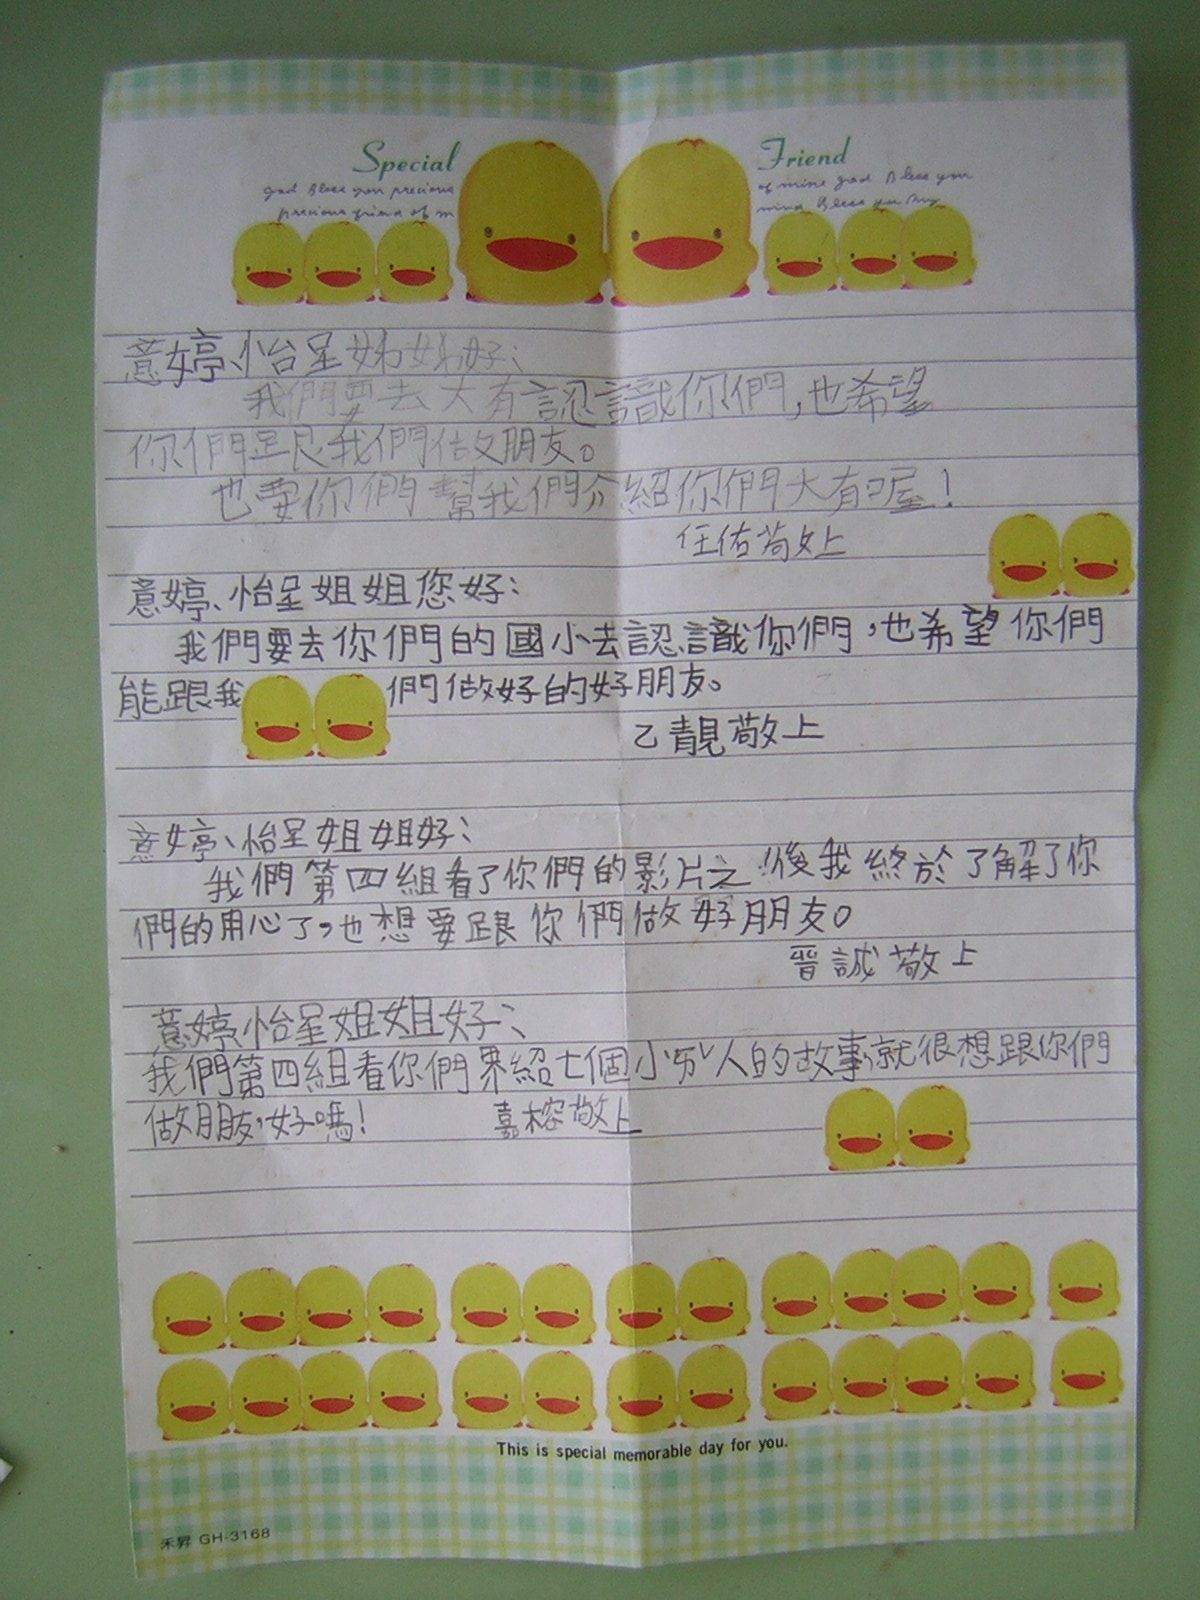 Special Friend
god Bless you precious of mine god Bless you
precious friend of m mind Bless you
意婷、怡呈姊姊好:
我們要去大有認識你們,也希望
你們跟我們做朋友。
也要你們幫我們介紹你們大有喔!
任佑敬上
意婷、怡呈姐姐您好:
我們要去你們的國小去認識你們,也希望你們
能跟我們做好的好朋友。
乙靚敬上
意婷、怡呈姐姐好:
我們第四組看了你們的影片之後我終於了解了你
們的用心了,也想要跟你們做好朋友。
晉誠敬上
意婷、怡呈姐姐好:
我們第四組看你們界紹七個小ㄞˇ人的故事,就很想跟你們
做朋友,好嗎!
嘉榕敬上
This is special memorable day for you.
禾昇 GH-3168